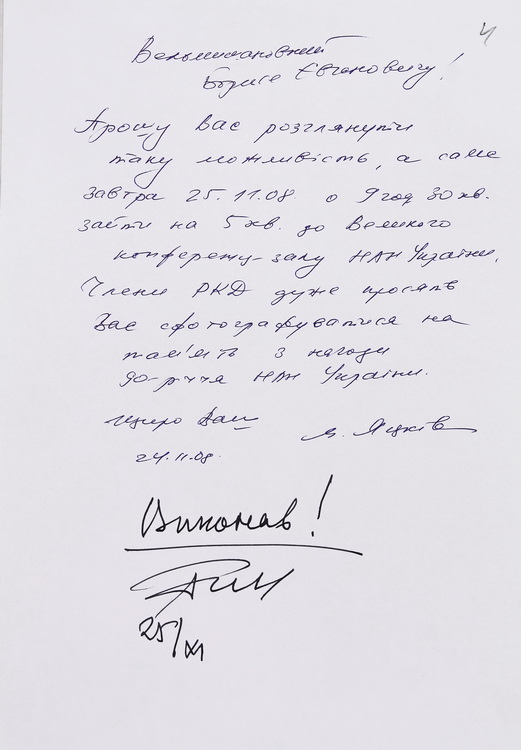 4
Вельмишановний
Борисе Євгеновичу!
Прошу Вас розглянути
таку можливість, а саме
завтра 25.11.08. о 9 год 30 хв.
зайти на 5 хв. до Великого
конференц-залу НАН України.
Члени РКД дуже просять
Вас сфотографуватися на
пам'ять з нагоди
90-річчя НАН України.
Щиро Ваш
Я. Яцків
24.11.08.
Виконав!
25/XI